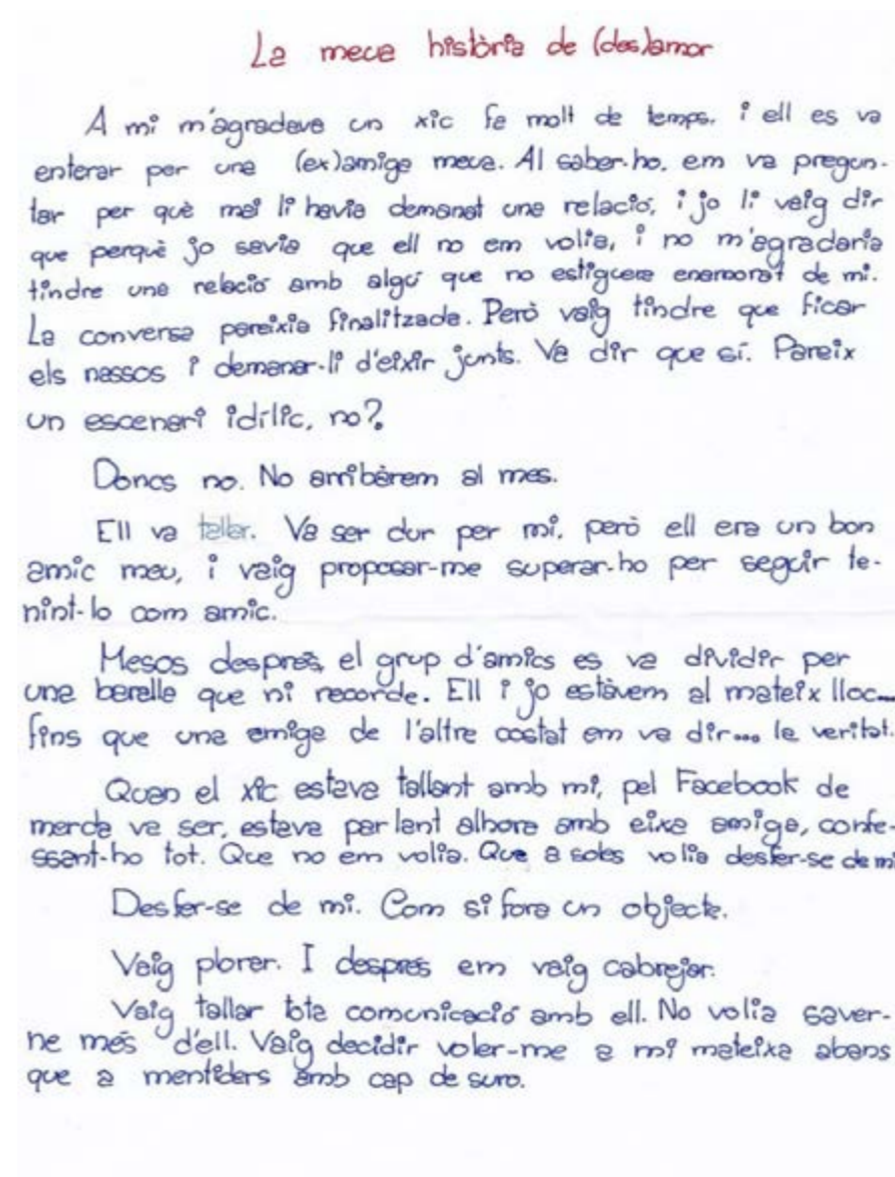 La meua història de (des)amor
A mi m'agradava un xic fa molt de temps. i ell es va
enterar per una (ex)amiga meua. Al saber-ho, em va pregun-
tar per què mai li havia demanat una relació, i jo li vaig dir
que perquè jo savia que ell no em volia, i no m'agradaria
tindre una relació amb algú que no estiguera enamorat de mi.
La conversa pareixia finalitzada. Però vaig tindre que ficar
els nassos i demanar-li d'eixir junts. Va dir que sí. Pareix
un escenari idílic, no?
Doncs no. No arribàrem al mes.
Ell va tallar. Va ser dur per mi, però ell era un bon
amic meu, i vaig proposar-me superar-ho per seguir te-
nint-lo com amic.
Mesos després, el grup d'amics es va dividir per
una baralla que ni recorde. Ell i jo estàvem al mateix lloc...
fins que una amiga de l'altre costat em va dir... la veritat.
Quan el xic estava tallant amb mi, pel Facebook de
merda va ser, estava parlant alhora amb eixa amiga, confe-
ssant-ho tot. Que no em volia. Que a soles volia desfer-se de mi
Desfer-se de mi. Com si fora un objecte.
Vaig plorar. I despres em vaig cabrejar.
Vaig tallar tota comunicació amb ell. No volia saver-
ne més d'ell. Vaig decidir voler-me a mi mateixa abans
que a mentiders amb cap de suro.